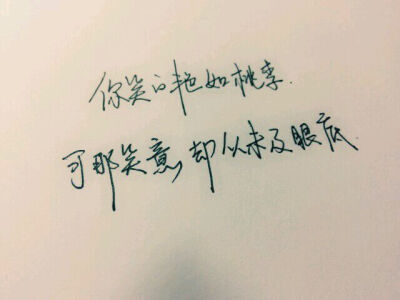 你笑的艳如桃李.
可那笑意,却从未及眼底.